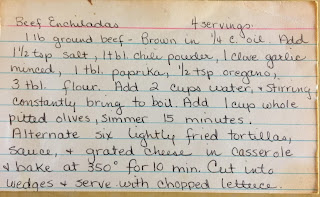 Beef Enchiladas 4 servings.
1 lb ground beef - Brown in 1/4 c. oil. Add
1 1/2 tsp salt, 1 tbl. chili powder, 1 clove garlic
minced, 1 tbl. paprika, 1/2 tsp oregano,
3 tbl. flour. Add 2 cups water, & stirring
constantly bring to boil. Add 1 cup whole
pitted olives, simmer 15 minutes.
Alternate six lightly fried tortillas,
sauce, & grated cheese in casserole
& bake at 350° for 10 min. Cut into
wedges & serve with chopped lettuce.